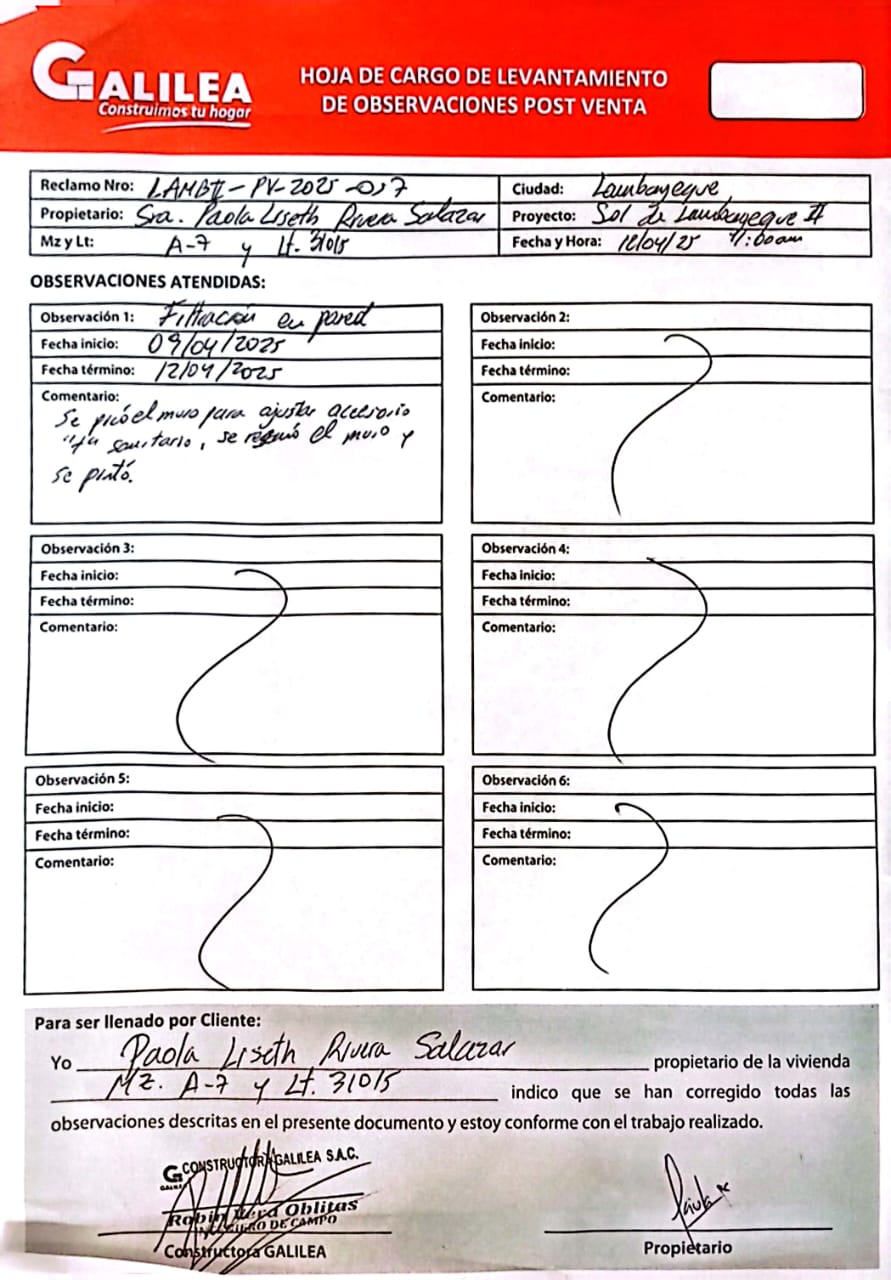 GALILEA
Construimos tu hogar
HOJA DE CARGO DE LEVANTAMIENTO
DE OBSERVACIONES POST VENTA
Reclamo Nro: LAMBII-PV-2025-017
Ciudad: Lambayeque
Propietario: Sra. Paola Liseth Rivera Salazar
Proyecto: Sol de Lambayeque II
Mz y Lt: A-7 y Lt. 31015
Fecha y Hora: 12/04/25 11:00am
OBSERVACIONES ATENDIDAS:
Observación 1: Filtración en pared
Fecha inicio: 09/04/2025
Fecha término: 12/04/2025
Comentario:
Se picó el muro para ajustar accesorio
sanitario, se resanó el muro y
se pintó.
Observación 2:
Fecha inicio:
Fecha término:
Comentario:
Observación 3:
Fecha inicio:
Fecha término:
Comentario:
Observación 4:
Fecha inicio:
Fecha término:
Comentario:
Observación 5:
Fecha inicio:
Fecha término:
Comentario:
Observación 6:
Fecha inicio:
Fecha término:
Comentario:
Para ser llenado por Cliente:
Yo Paola Liseth Rivera Salazar propietario de la vivienda
MZ. A-7 y Lt. 31015 indico que se han corregido todas las
observaciones descritas en el presente documento y estoy conforme con el trabajo realizado.
CONSTRUCTORA GALILEA S.A.C.
Robin Oblitas
INGENIERO DE CAMPO
Constructora GALILEA
Paola
Propietario